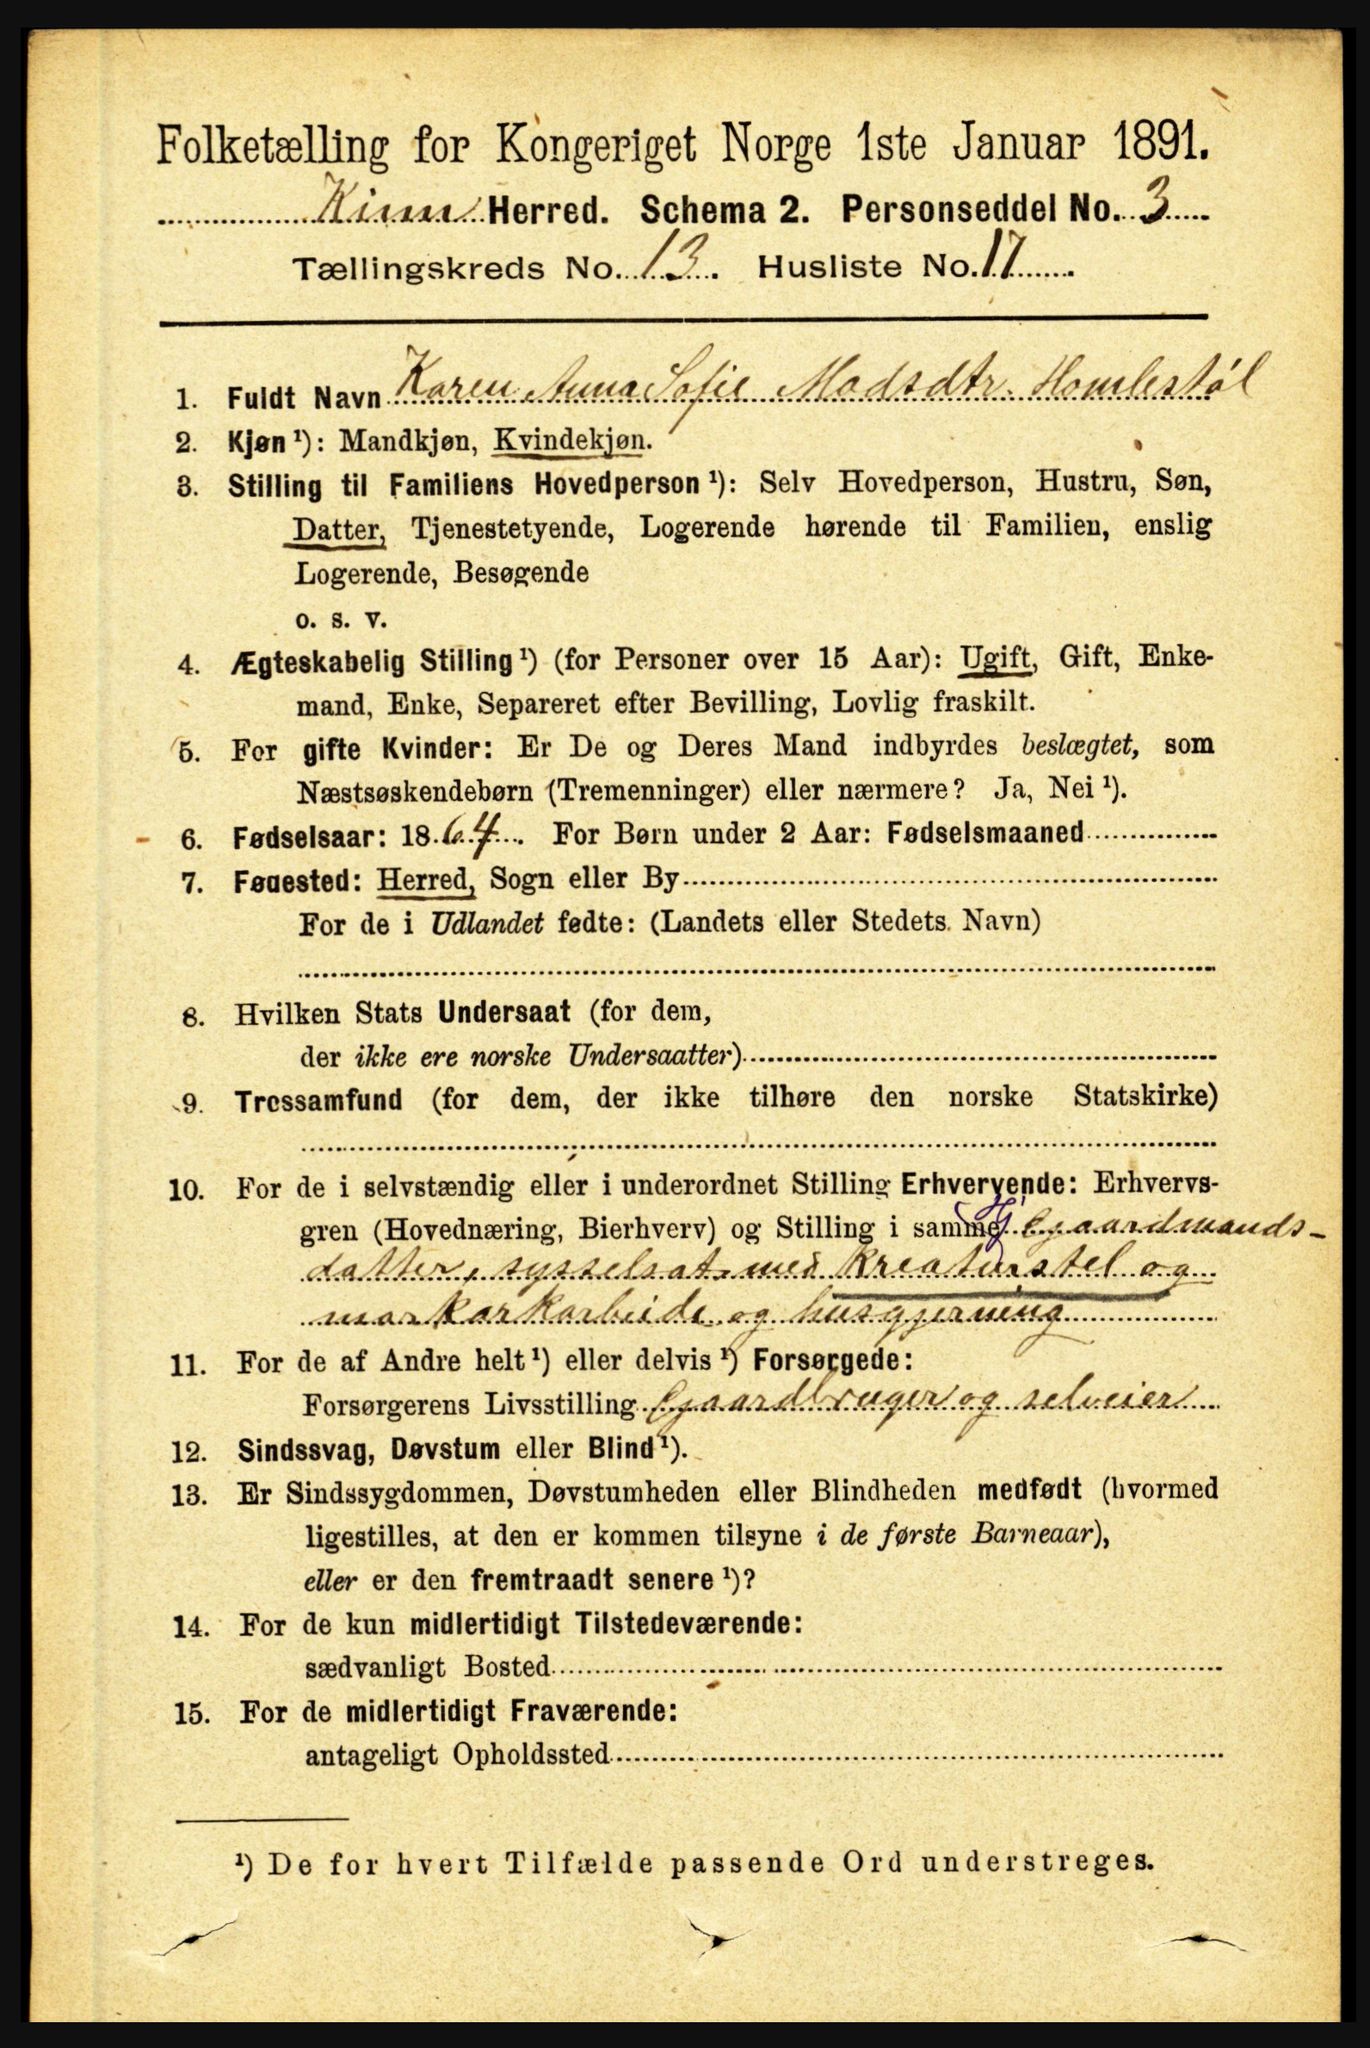 Folketælling for Kongeriget Norge 1ste Januar 1891.
Kinn Herred. Schema 2. Personseddel No. 3
Tællingskreds No. 13. Husliste No. 17
1. Fuldt Navn Karen Anna Sofie Madsdtr. Homlestøl
2. Kjøn ¹): Mandkjøn, Kvindekjøn.
3. Stilling til Familiens Hovedperson ¹): Selv Hovedperson, Hustru, Søn,
Datter, Tjenestetyende, Logerende hørende til Familien, enslig
Logerende, Besøgende
o. s. v.
4. Ægteskabelig Stilling ¹) (for Personer over 15 Aar): Ugift, Gift, Enke-
mand, Enke, Separeret efter Bevilling, Lovlig fraskilt.
5. For gifte Kvinder: Er De og Deres Mand indbyrdes beslægtet, som
Næstsøskendebørn (Tremenninger) eller nærmere? Ja, Nei ¹).
6. Fødselsaar: 1864. For Børn under 2 Aar: Fødselsmaaned
7. Fødested: Herred, Sogn eller By
For de i Udlandet fødte: (Landets eller Stedets Navn)
8. Hvilken Stats Undersaat (for dem,
der ikke ere norske Undersaatter)
9. Trossamfund (for dem, der ikke tilhøre den norske Statskirke)
10. For de i selvstændig eller i underordnet Stilling Erhvervende: Erhvervs-
gren (Hovednæring, Bierhverv) og Stilling i samme Gaardmands-
datter, sysselsat med kreaturstel og
markarbeide og husgjerning
11. For de af Andre helt ¹) eller delvis ¹) Forsørgede:
Forsørgerens Livsstilling Gaardbruger og selveier
12. Sindssvag, Døvstum eller Blind ¹).
13. Er Sindssygdommen, Døvstumheden eller Blindheden medfødt (hvormed
ligestilles, at den er kommen tilsyne i de første Barneaar),
eller er den fremtraadt senere ¹)?
14. For de kun midlertidigt Tilstedeværende:
sædvanligt Bosted
15. For de midlertidigt Fraværende:
antageligt Opholdssted
¹) De for hvert Tilfælde passende Ord understreges.